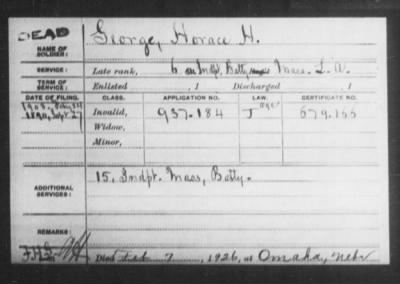 DEAD
NAME OF SOLDIER: George, Horace H.
SERVICE: Late rank, 6 Indpt. Batty Mass. L. A.
TERM OF SERVICE: Enlisted , 1 Discharged , 1
DATE OF FILING. CLASS. APPLICATION NO. LAW. CERTIFICATE NO.
1890, Sept 27 Invalid, 937.184 679.155
Widow,
Minor,
ADDITIONAL SERVICES: 15. Indpt. Mass, Batty.
REMARKS:
Died Feb 7, 1926, at Omaha, Nebr